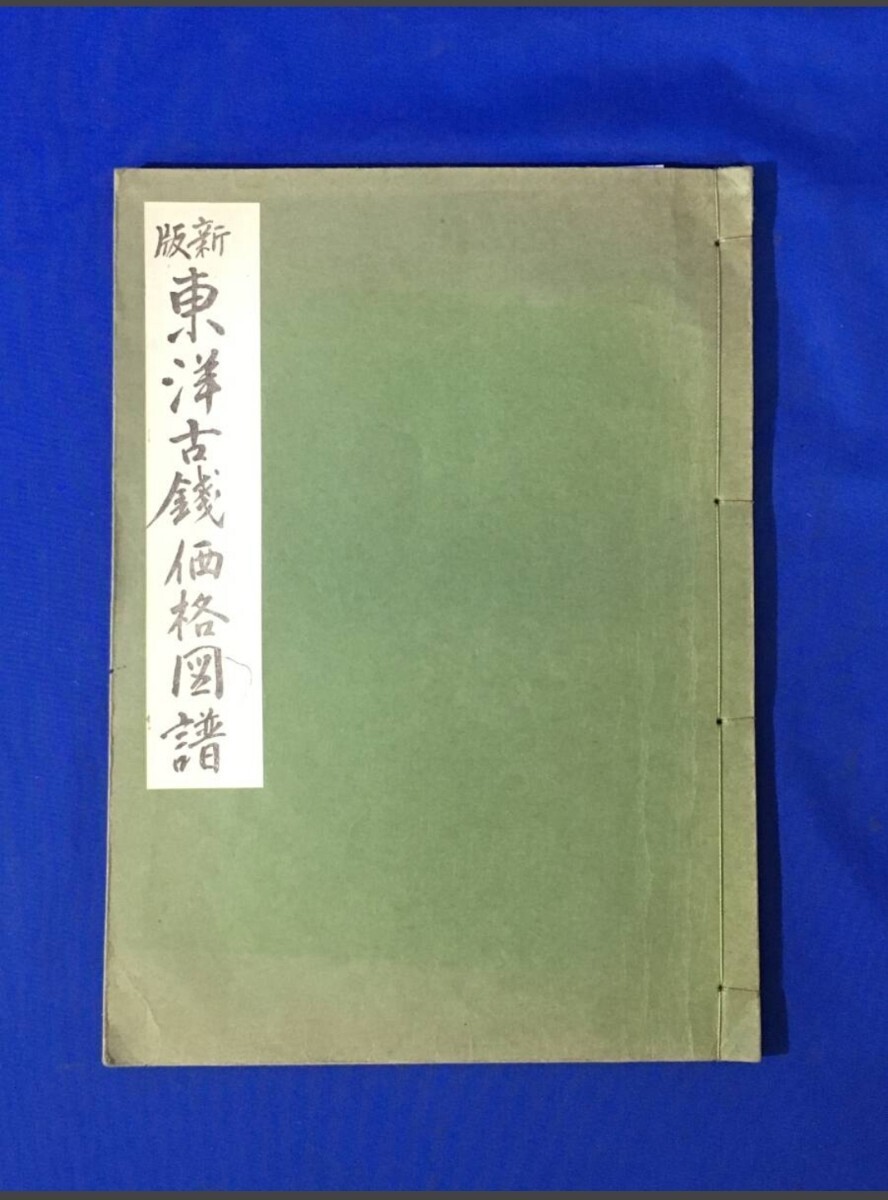 新版
東洋古錢価格図譜